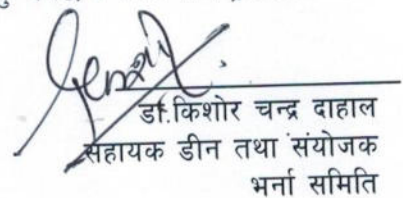 डा.किशोर चन्द्र दाहाल
सहायक डीन तथा संयोजक
भर्ना समिति